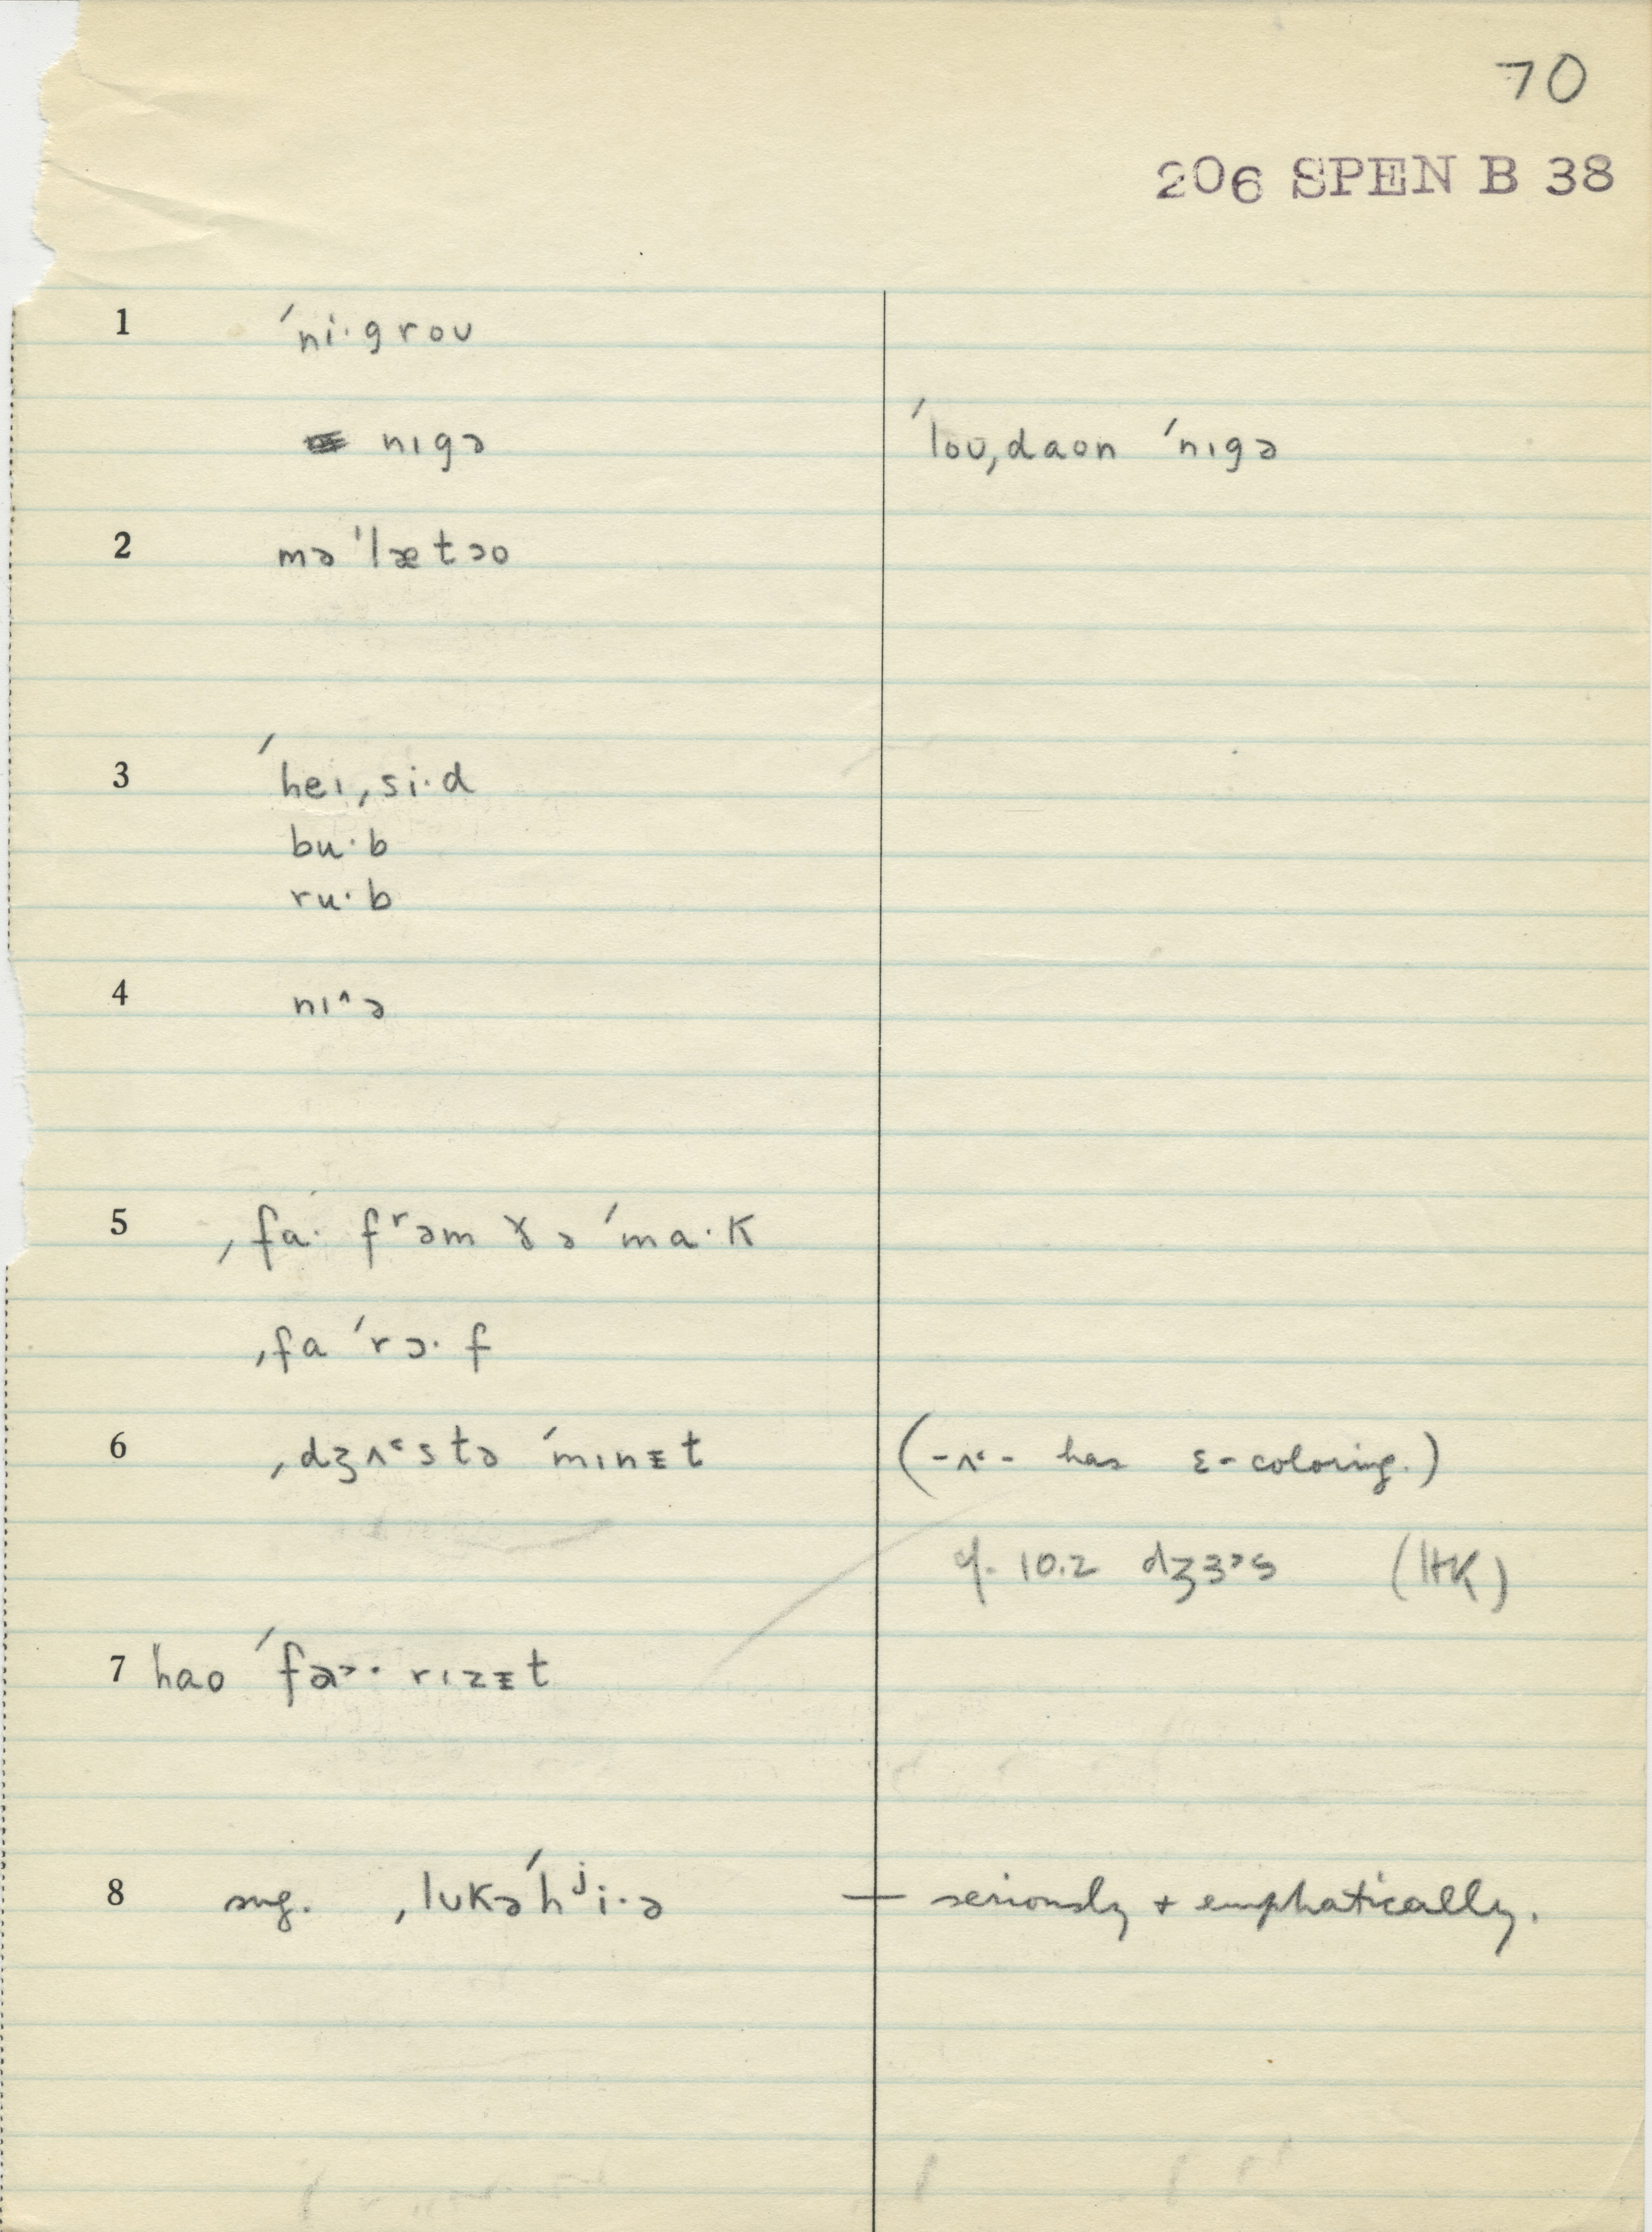 70
206 SPEN B 38
1 ˈni·groʊ
nɪgə ˈloʊˌdaʊn ˈnɪgə
2 məˈlætəo
3 ˈheɪˌsi·d
bu·b
ru·b
4 nɪ^ə
5 ˌfa· fʳəm ɤə ˈma·k
ˌfa ˈrɔ·f
6 ˌdʒʌ˂stə ˈmɪnɪ̵t (-ʌ˂- has ɛ-coloring.)
cf. 10.2 dʒɜ˃s (HK)
7 hao ˈfə˃· rɪzɪ̵t
8 sug. ˌlʊkəˈhʲi·ə — seriously + emphatically.